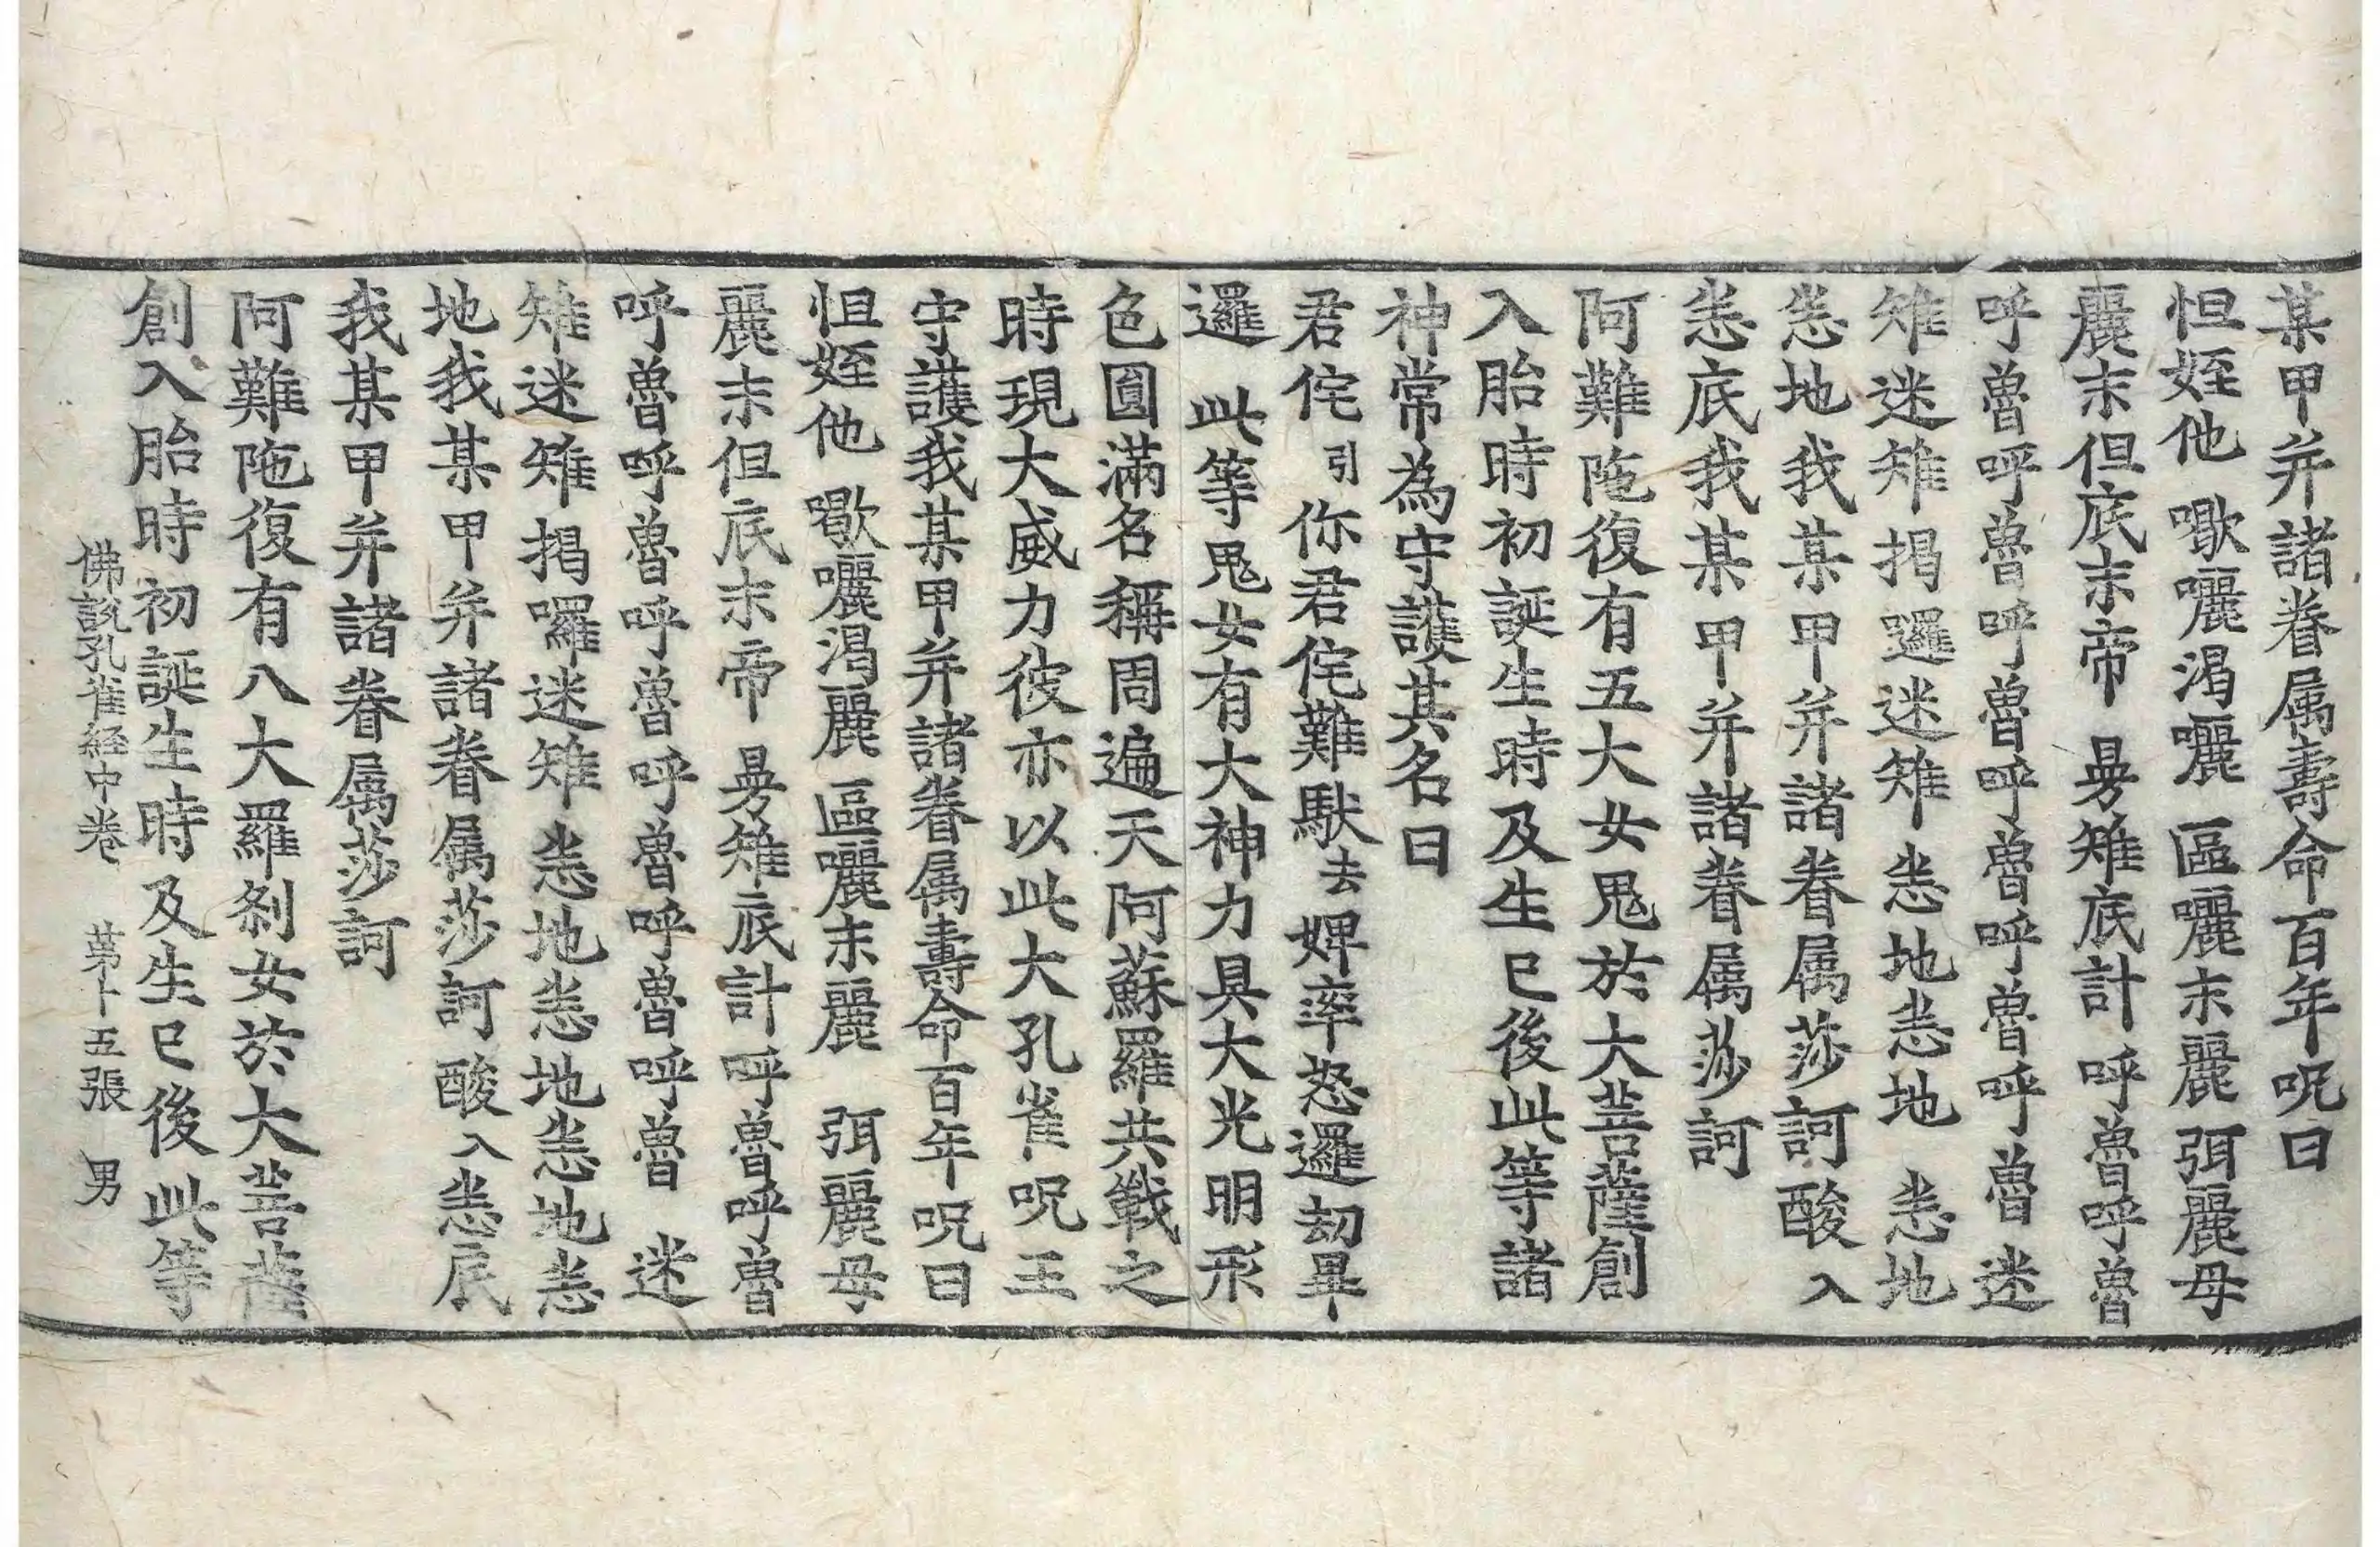 某甲并諸眷属壽命百年呪曰
怛姪他 歜囇渴囇 區囇末麗弭麗母
麗末但底末帝 曼雉底計 呼魯呼魯
呼魯呼魯呼魯呼魯呼魯呼魯 迷
雉迷雉揭邏迷雉 恙地恙地 恙地
恙地我某甲并諸眷属莎訶酸入
恙底我某甲并諸眷属莎訶
阿難陁復有五大女鬼於大菩薩創
入胎時初誕生時及生已後此等諸
神常為守護其名曰
君侘引你君侘難馱去婢率怒邏劫畢
邏 此等鬼女有大神力具大光明形
色圓滿名稱周遍天阿蘇羅共戰之
時現大威力彼亦以此大孔雀呪王
守護我某甲并諸眷属壽命百年呪曰
怛姪他 歜囇渴麗 區囇末麗 弭麗母
麗末但底末帝 曼雉底計呼魯呼魯
呼魯呼魯呼魯呼魯呼魯呼魯 迷
雉迷雉揭囉迷雉 恙地恙地恙地恙
地我某甲并諸眷属莎訶酸入恙底
我某甲并諸眷属莎訶
阿難陁復有八大羅剎女於大菩薩
創入胎時初誕生時及生已後此等
佛說孔雀経中卷 苐十五張 男